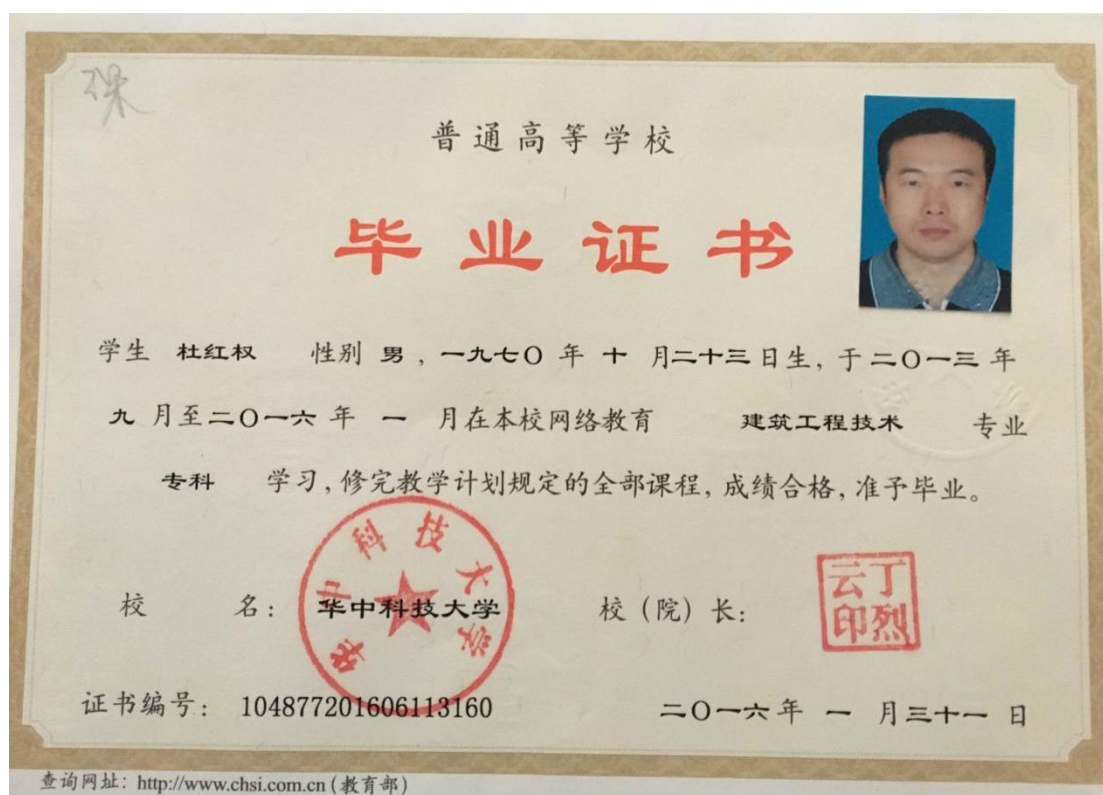 保
普通高等学校
毕业证书
学生 杜红权 性别 男，一九七〇 年 十 月二十三日生，于二〇一三 年
九 月至二〇一六 年 一 月在本校网络教育 建筑工程技术 专业
专科 学习，修完教学计划规定的全部课程，成绩合格，准予毕业。
华中科技大学
校 名： 华中科技大学 校（院）长：
丁烈云印
证书编号： 104877201606113160 二〇一六年 一 月三十一 日
查询网址：http://www.chsi.com.cn(教育部)